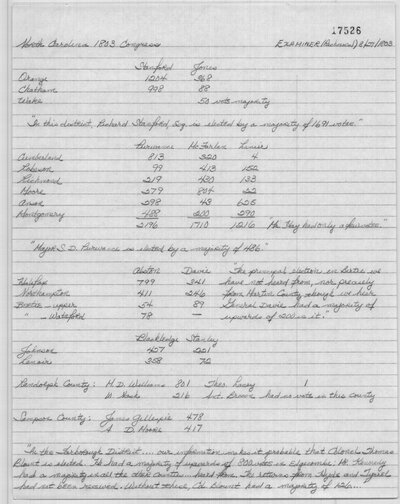 17526
North Carolina 1803 Congress EXAMINER (Richmond) 8/27/1803
Stanford Jones
Orange 1204 368
Chatham 998 88
Wake 50 vote majority
"In this district, Richard Stanford, Esq. is elected by a majority of 1691 votes."
Purviance McFarlan
Cumberland 813 320 4
Robeson 99 413 152
Richmond 219 430 133
Moore 279 804 22
Anson 298 43 605
Montgomery 488 200 290
2196 1710 1216 Mr. Hay had only a few votes."
"Major S. D. Purviance is elected by a majority of 486."
Alston Davie "The principal election in Bertie we
Halifax 799 341 have not heard from, nor precisely
Northampton 411 246 from Martin County although we hear
Bertie - upper 54 89 General Davie had a majority of
- Watsford 78 — upwards of 200 in it."
Blackledge Stanley
Johnson 407 201
Lenoir 358 72
Randolph County: M. D. Williams 801 Theo. 1
W. 216 Brown had no vote in this county
Sampson County: James Gillespie 478
D. Moore 417
"In the Tarborough District .... our information makes it probable that Colonel Thomas
Blount is elected. He had a majority of upwards of 800 votes in Edgecombe. Mr. Kennedy
had a majority in all the other counties heard from. The returns from Hyde and Tyrrell
had not been received. Without these, Col. Blount had a majority of 126...